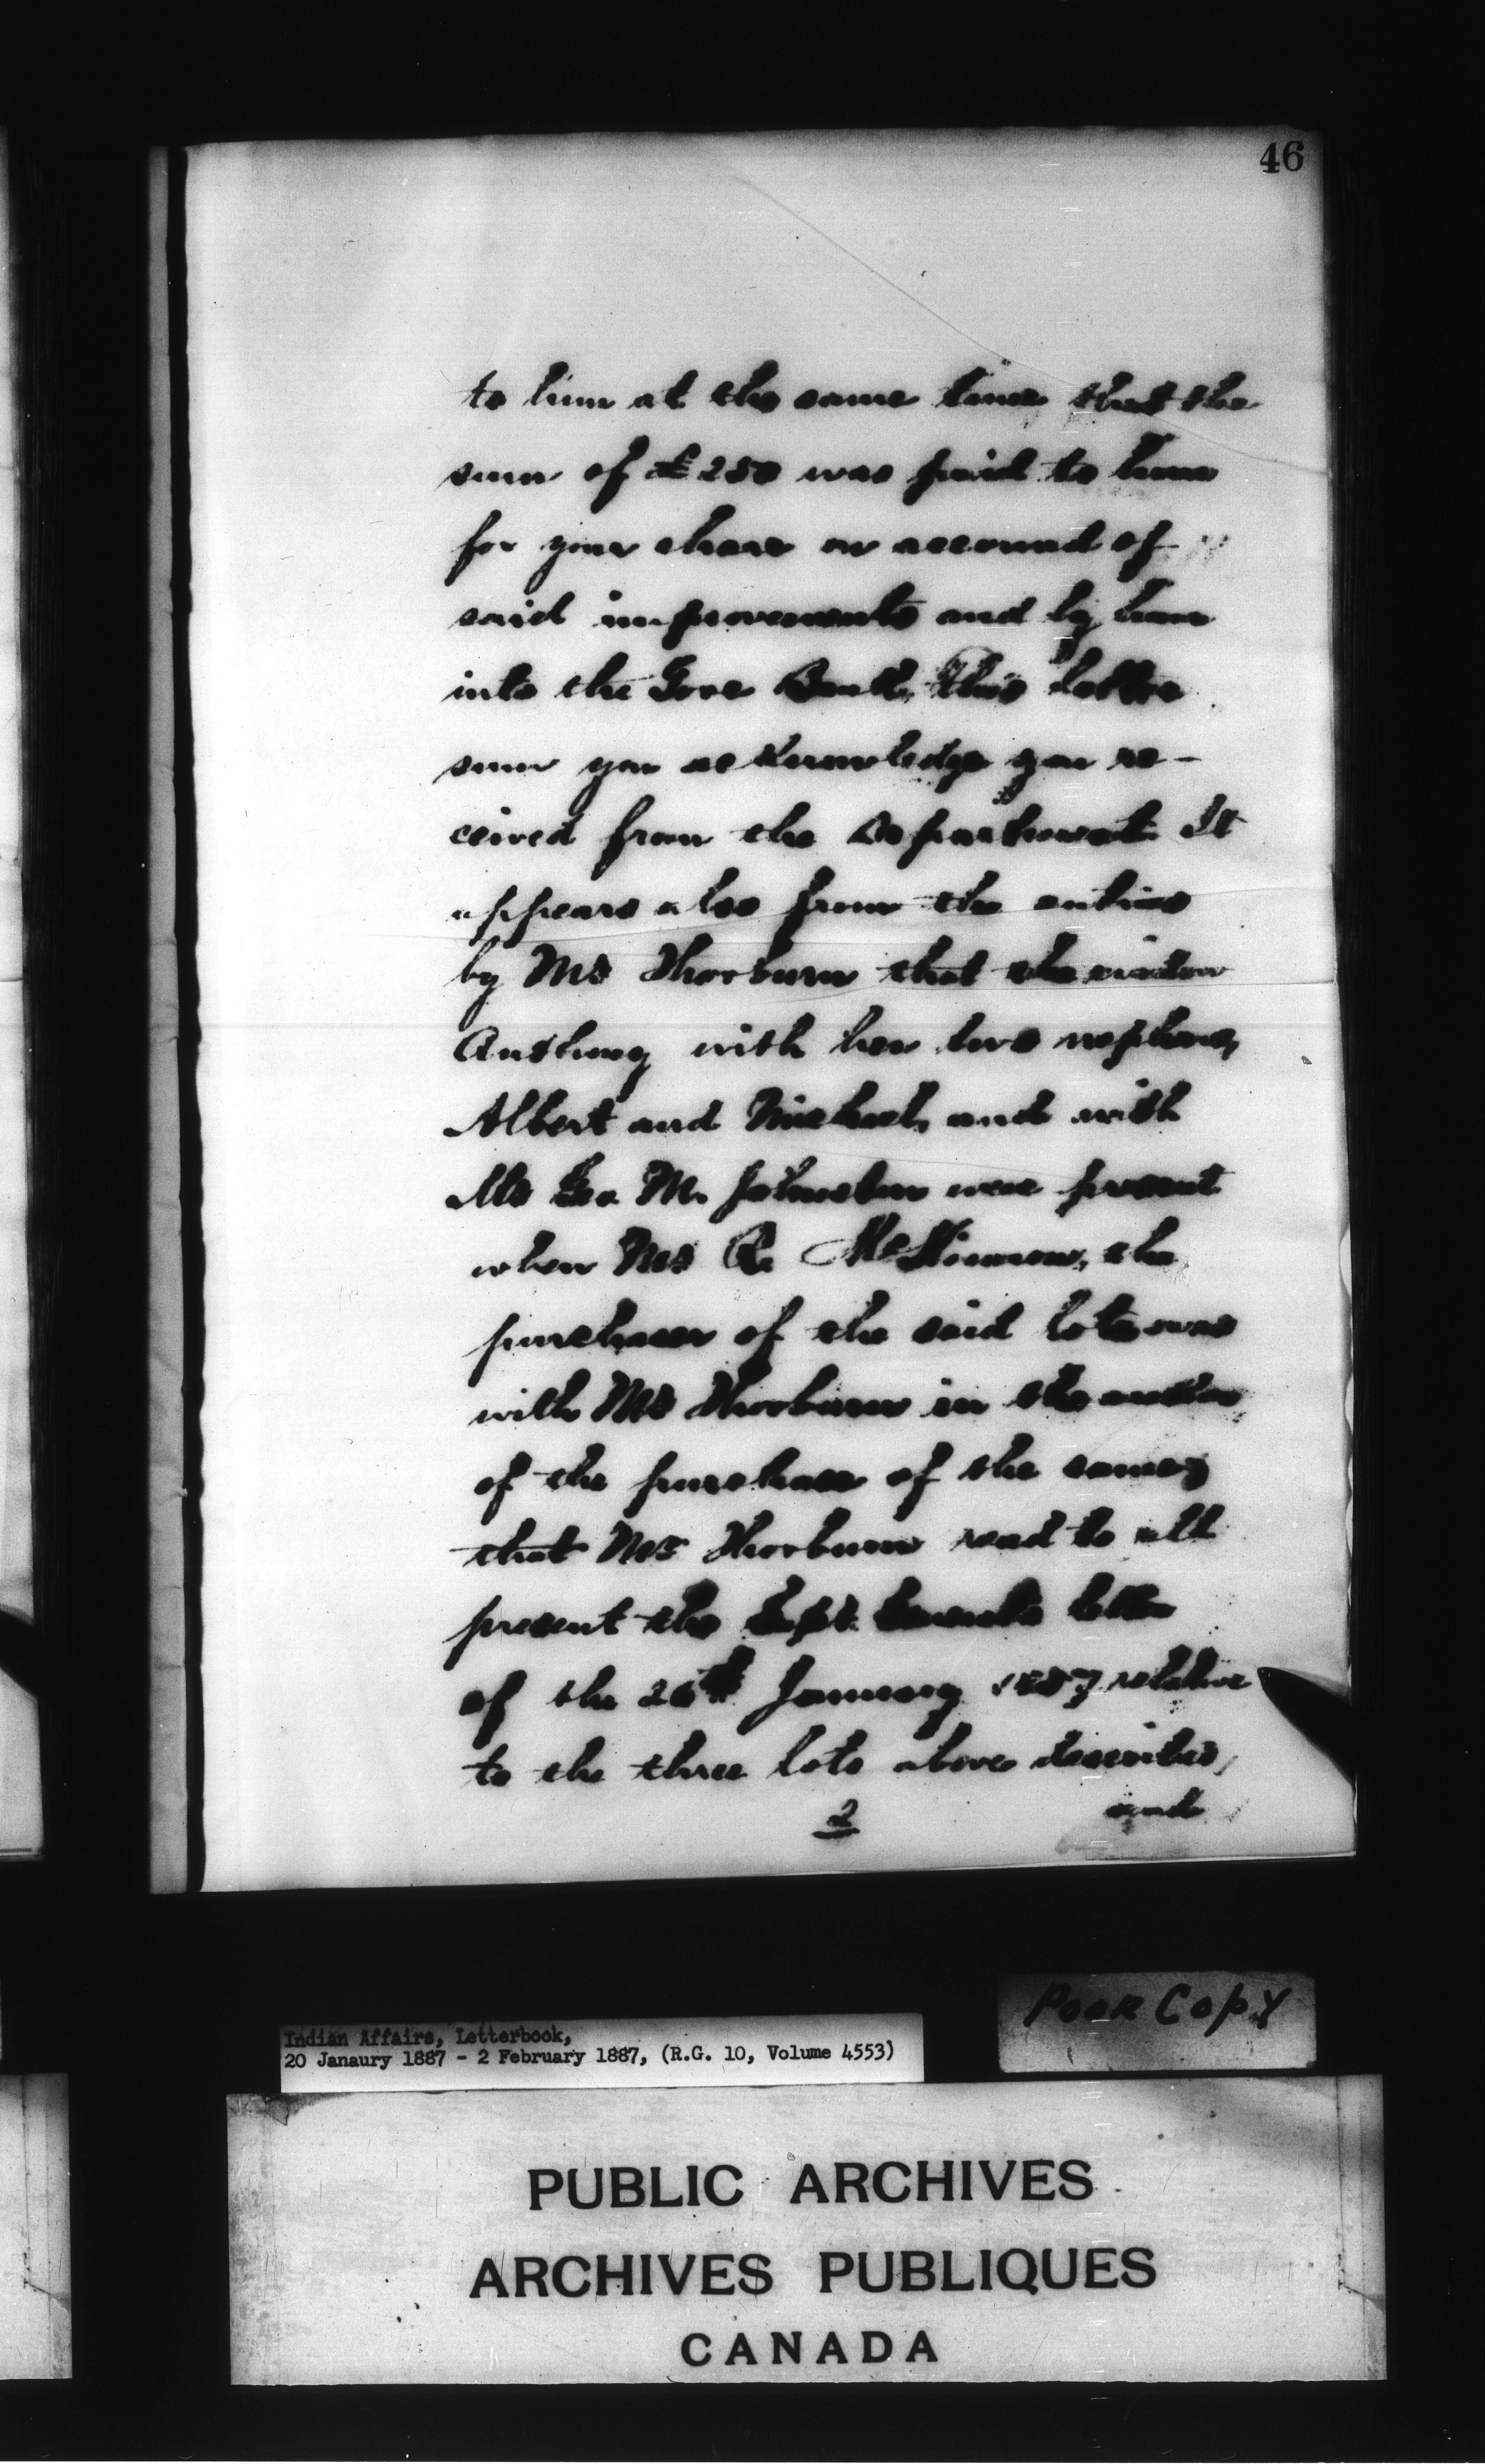 46
to him at the same time that the
sum of £250 was paid to him
for your share on account of
said improvements and by him
into the Gore Bank. This latter
sum you acknowledge you re-
ceived from the Department. It
appears also from the entries
by Mr Thorburn that the widow
Anthony with her two nephews,
Albert and Michael, and with
Mr Geo. M. Johnston were present
when Mr R. McKinnon, the
purchaser of the said lots was
with Mr Thorburn in the matter
of the purchase of the same,
that Mr Thorburn read to all
present the letter
of the 26th January relative
to the three lots above described,
2 and
Poor Copy
Indian Affairs, Letterbook,
20 Janaury 1887 - 2 February 1887, (R.G. 10, Volume 4553)
PUBLIC ARCHIVES
ARCHIVES PUBLIQUES
CANADA